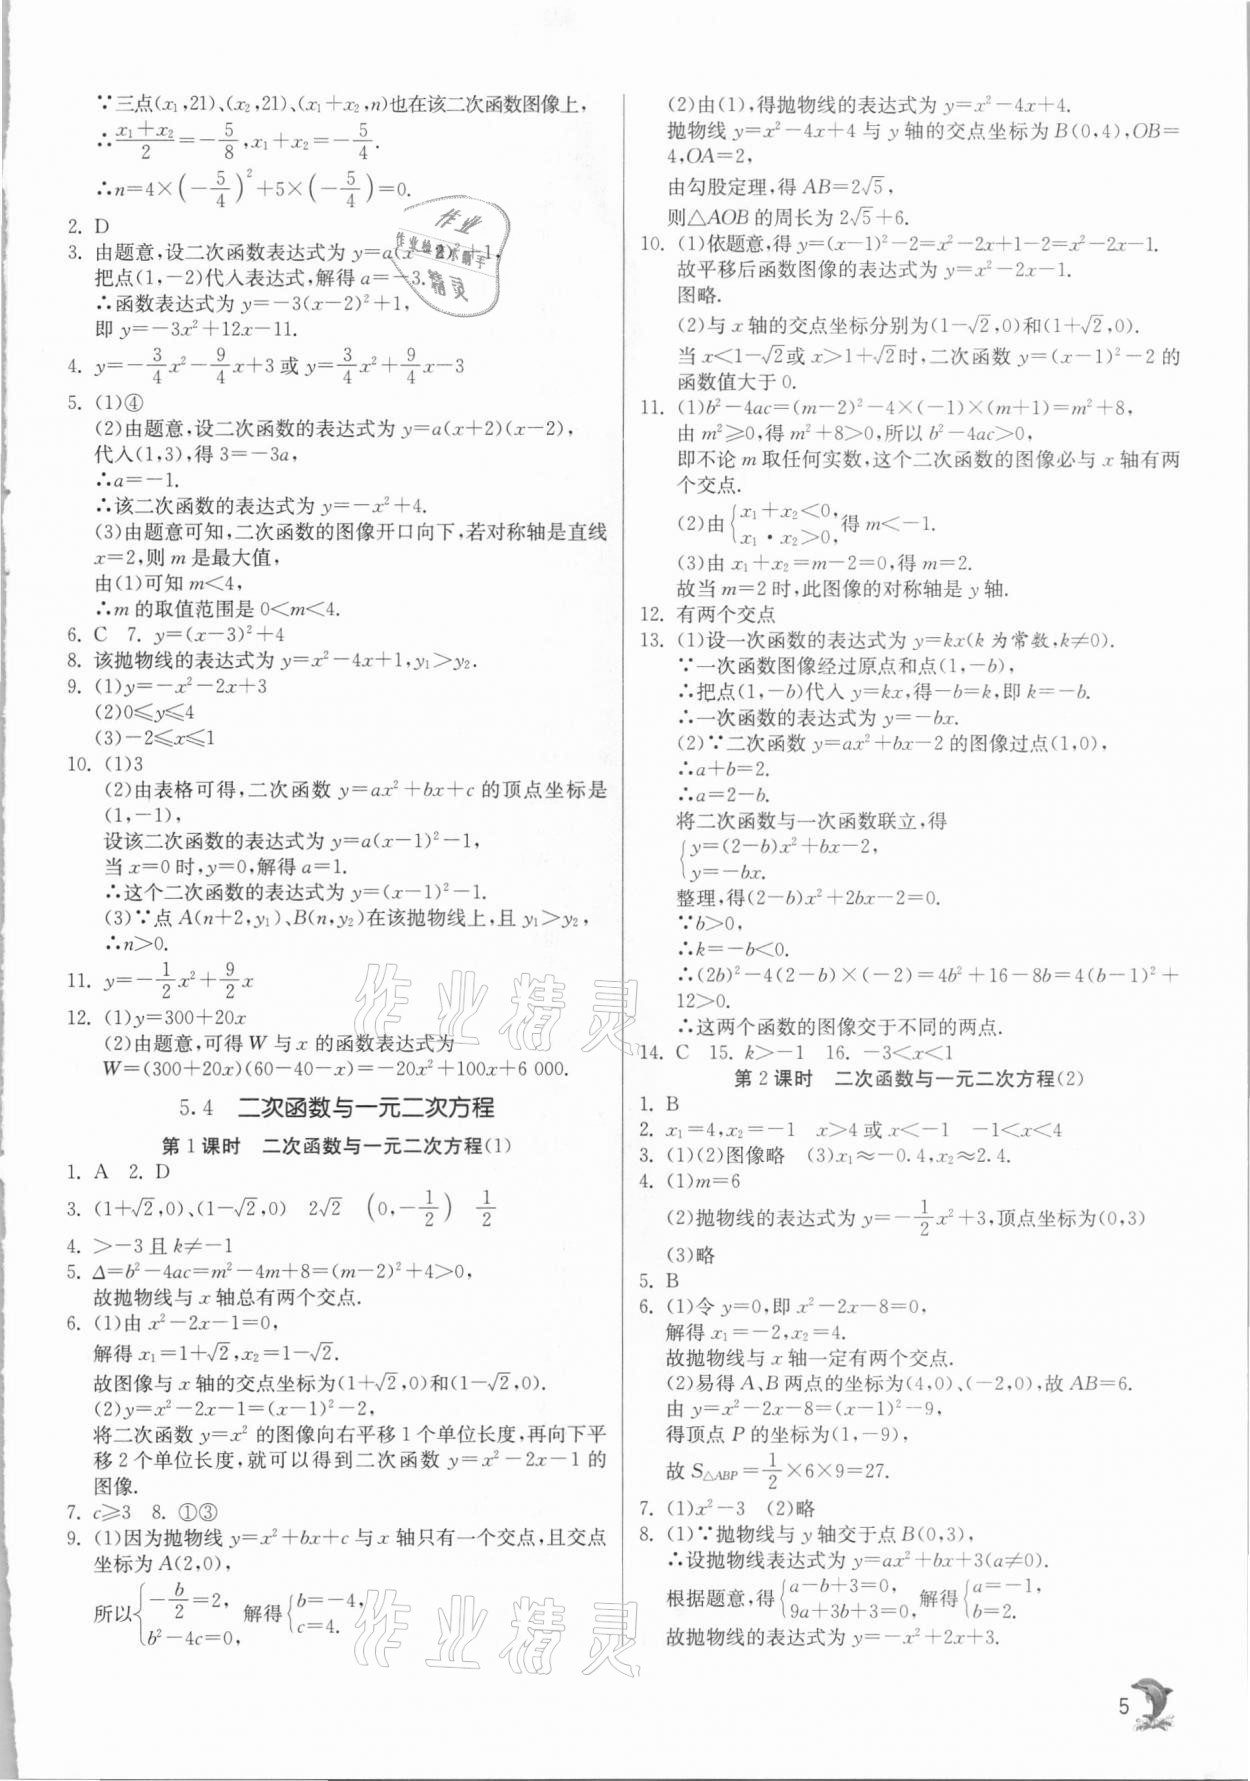 ∵三点(x₁,21)、(x₂,21)、(x₁+x₂,n)也在该二次函数图像上,
∴(x₁+x₂)/2=-5/8,x₁+x₂=-5/4.
∴n=4×(-5/4)²+5×(-5/4)=0.
2. D
3. 由题意,设二次函数表达式为 y=a(x-2)²+1,
把点(1,-2)代入表达式,解得 a=-3.
∴函数表达式为 y=-3(x-2)²+1,
即 y=-3x²+12x-11.
4. y=-3/4x²-9/4x+3 或 y=3/4x²+9/4x-3
5. (1)④
(2)由题意,设二次函数的表达式为 y=a(x+2)(x-2),
代入(1,3),得 3=-3a,
∴a=-1.
∴该二次函数的表达式为 y=-x²+4.
(3)由题意可知,二次函数的图像开口向下,若对称轴是直线
x=2,则 m 是最大值,
由(1)可知 m<4,
∴m 的取值范围是 0<m<4.
6. C 7. y=(x-3)²+4
8. 该抛物线的表达式为 y=x²-4x+1,y₁>y₂.
9. (1)y=-x²-2x+3
(2)0≤y≤4
(3)-2≤x≤1
10. (1)3
(2)由表格可得,二次函数 y=ax²+bx+c 的顶点坐标是
(1,-1),
设该二次函数的表达式为 y=a(x-1)²-1,
当 x=0 时,y=0,解得 a=1.
∴这个二次函数的表达式为 y=(x-1)²-1.
(3)∵点 A(n+2,y₁)、B(n,y₂)在该抛物线上,且 y₁>y₂,
∴n>0.
11. y=-1/2x²+9/2x
12. (1)y=300+20x
(2)由题意,可得 W 与 x 的函数表达式为
W=(300+20x)(60-40-x)=-20x²+100x+6 000.
5.4 二次函数与一元二次方程
第 1 课时 二次函数与一元二次方程(1)
1. A 2. D
3. (1+√2,0)、(1-√2,0) 2√2 (0,-1/2) 1/2
4. >-3 且 k≠-1
5. Δ=b²-4ac=m²-4m+8=(m-2)²+4>0,
故抛物线与 x 轴总有两个交点.
6. (1)由 x²-2x-1=0,
解得 x₁=1+√2,x₂=1-√2.
故图像与 x 轴的交点坐标为(1+√2,0)和(1-√2,0).
(2)y=x²-2x-1=(x-1)²-2,
将二次函数 y=x² 的图像向右平移 1 个单位长度,再向下平
移 2 个单位长度,就可以得到二次函数 y=x²-2x-1 的
图像.
7. c≥3 8. ①③
9. (1)因为抛物线 y=x²+bx+c 与 x 轴只有一个交点,且交点
坐标为 A(2,0),
所以{-b/2=2, b²-4c=0, 解得{b=-4, c=4.
(2)由(1),得抛物线的表达式为 y=x²-4x+4.
抛物线 y=x²-4x+4 与 y 轴的交点坐标为 B(0,4),OB=
4,OA=2,
由勾股定理,得 AB=2√5,
则△AOB 的周长为 2√5+6.
10. (1)依题意,得 y=(x-1)²-2=x²-2x+1-2=x²-2x-1.
故平移后函数图像的表达式为 y=x²-2x-1.
图略.
(2)与 x 轴的交点坐标分别为(1-√2,0)和(1+√2,0).
当 x<1-√2或 x>1+√2时,二次函数 y=(x-1)²-2 的
函数值大于 0.
11. (1)b²-4ac=(m-2)²-4×(-1)×(m+1)=m²+8,
由 m²≥0,得 m²+8>0,所以 b²-4ac>0,
即不论 m 取任何实数,这个二次函数的图像必与 x 轴有两
个交点.
(2)由{x₁+x₂<0, x₁·x₂>0, 得 m<-1.
(3)由 x₁+x₂=m-2=0,得 m=2.
故当 m=2 时,此图像的对称轴是 y 轴.
12. 有两个交点
13. (1)设一次函数的表达式为 y=kx(k 为常数,k≠0).
∵一次函数图像经过原点和点(1,-b),
∴把点(1,-b)代入 y=kx,得-b=k,即 k=-b.
∴一次函数的表达式为 y=-bx.
(2)∵二次函数 y=ax²+bx-2 的图像过点(1,0),
∴a+b=2.
∴a=2-b.
将二次函数与一次函数联立,得
{y=(2-b)x²+bx-2, y=-bx.
整理,得(2-b)x²+2bx-2=0.
∵b>0,
∴k=-b<0.
∴(2b)²-4(2-b)×(-2)=4b²+16-8b=4(b-1)²+
12>0.
∴这两个函数的图像交于不同的两点.
14. C 15. k>-1 16. -3<x<1
第 2 课时 二次函数与一元二次方程(2)
1. B
2. x₁=4,x₂=-1 x>4 或 x<-1 -1<x<4
3. (1)(2)图像略 (3)x₁≈-0.4,x₂≈2.4.
4. (1)m=6
(2)抛物线的表达式为 y=-1/2x²+3,顶点坐标为(0,3)
(3)略
5. B
6. (1)令 y=0,即 x²-2x-8=0,
解得 x₁=-2,x₂=4.
故抛物线与 x 轴一定有两个交点.
(2)易得 A、B 两点的坐标为(4,0)、(-2,0),故 AB=6.
由 y=x²-2x-8=(x-1)²-9,
得顶点 P 的坐标为(1,-9),
故 S△ABP=1/2×6×9=27.
7. (1)x²-3 (2)略
8. (1)∵抛物线与 y 轴交于点 B(0,3),
∴设抛物线表达式为 y=ax²+bx+3(a≠0).
根据题意,得{a-b+3=0, 9a+3b+3=0, 解得{a=-1, b=2.
故抛物线的表达式为 y=-x²+2x+3.
5
作业
精灵
作业精灵
作业精灵